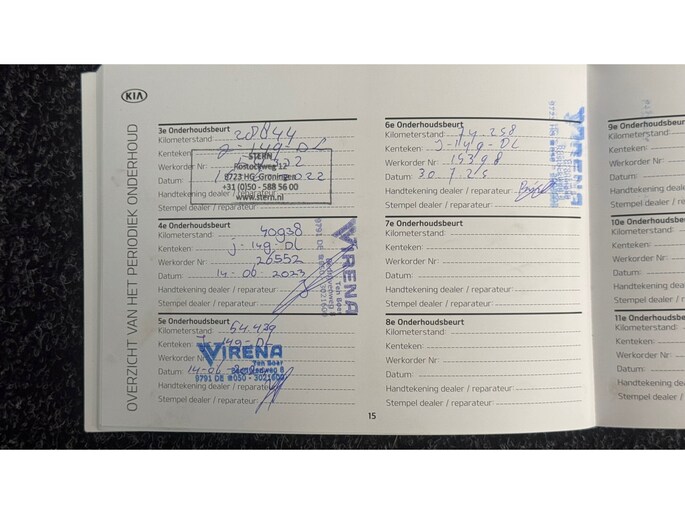 KIA
OVERZICHT VAN HET PERIODIEK ONDERHOUD
3e Onderhoudsbeurt
Kilometerstand: 28844
Kenteken: J-149-DL
Werkorder Nr:
Datum:
Handtekening dealer / reparateur:
Stempel dealer / reparateur:
STERN
Rostockweg 12
9723 HG Groningen
+31 (0)50 - 588 56 00
www.stern.nl
4e Onderhoudsbeurt
Kilometerstand: 40938
Kenteken: J-149-DL
Werkorder Nr: 26552
Datum: 14-06-2023
Handtekening dealer / reparateur:
Stempel dealer / reparateur:
VIRENA
Ten Boer
9791 DE ☎050 - 3021600
5e Onderhoudsbeurt
Kilometerstand: 54.429
Kenteken: J-149-DL
Werkorder Nr:
Datum: 14-06-
Handtekening dealer / reparateur:
Stempel dealer / reparateur:
VIRENA
Ten Boer
9791 DE ☎050 - 3021600
6e Onderhoudsbeurt
Kilometerstand: 74.258
Kenteken: J-149-DL
Werkorder Nr: 15398
Datum: 30 7 25
Handtekening dealer / reparateur:
Stempel dealer / reparateur:
VIRENA
7e Onderhoudsbeurt
Kilometerstand:
Kenteken:
Werkorder Nr:
Datum:
Handtekening dealer / reparateur:
Stempel dealer / reparateur:
8e Onderhoudsbeurt
Kilometerstand:
Kenteken:
Werkorder Nr:
Datum:
Handtekening dealer / reparateur:
Stempel dealer / reparateur:
15
9e Onderhoudsbeurt
Kilometerstand:
Kenteken:
Werkorder Nr:
Datum:
Handtekening deal
Stempel dealer / r
10e Onderhoudsbeu
Kilometerstand:
Kenteken:
Werkorder Nr:
Datum:
Handtekening deale
Stempel dealer / re
11e Onderhoudsbeu
Kilometerstand:
Kenteken:
Werkorder Nr:
Datum:
Handtekening dealer
Stempel dealer / rep